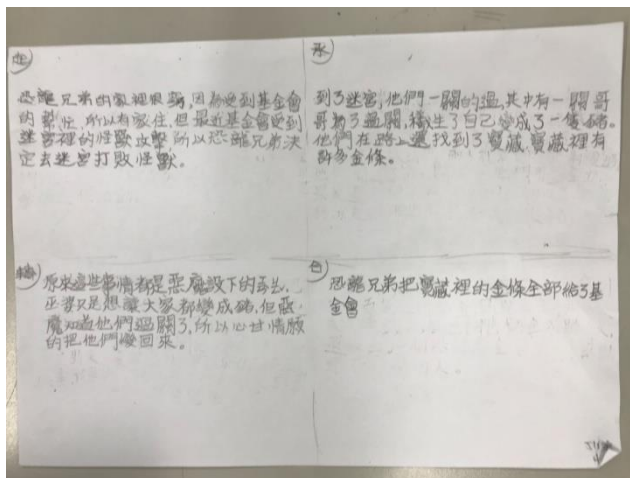 起
恐龍兄弟的家裡很窮,因為受到基金會
的幫忙,所以有家住,但最近基金會受到
迷宮裡的怪獸攻擊所以恐龍兄弟決
定去迷宮打敗怪獸。
承
到了迷宮,他們一關一關的過,其中有一關哥
哥為了過關,犧牲了自己變成了一隻豬。
他們在路上還找到了寶藏,寶藏裡有
許多金條。
轉
原來這些事情都是惡魔設下的
巫婆只是想讓大家都變成豬,但惡
魔知道他們過關了,所以心甘情願
的把他們變回來。
合
恐龍兄弟把寶藏裡的金條全部給了基
金會